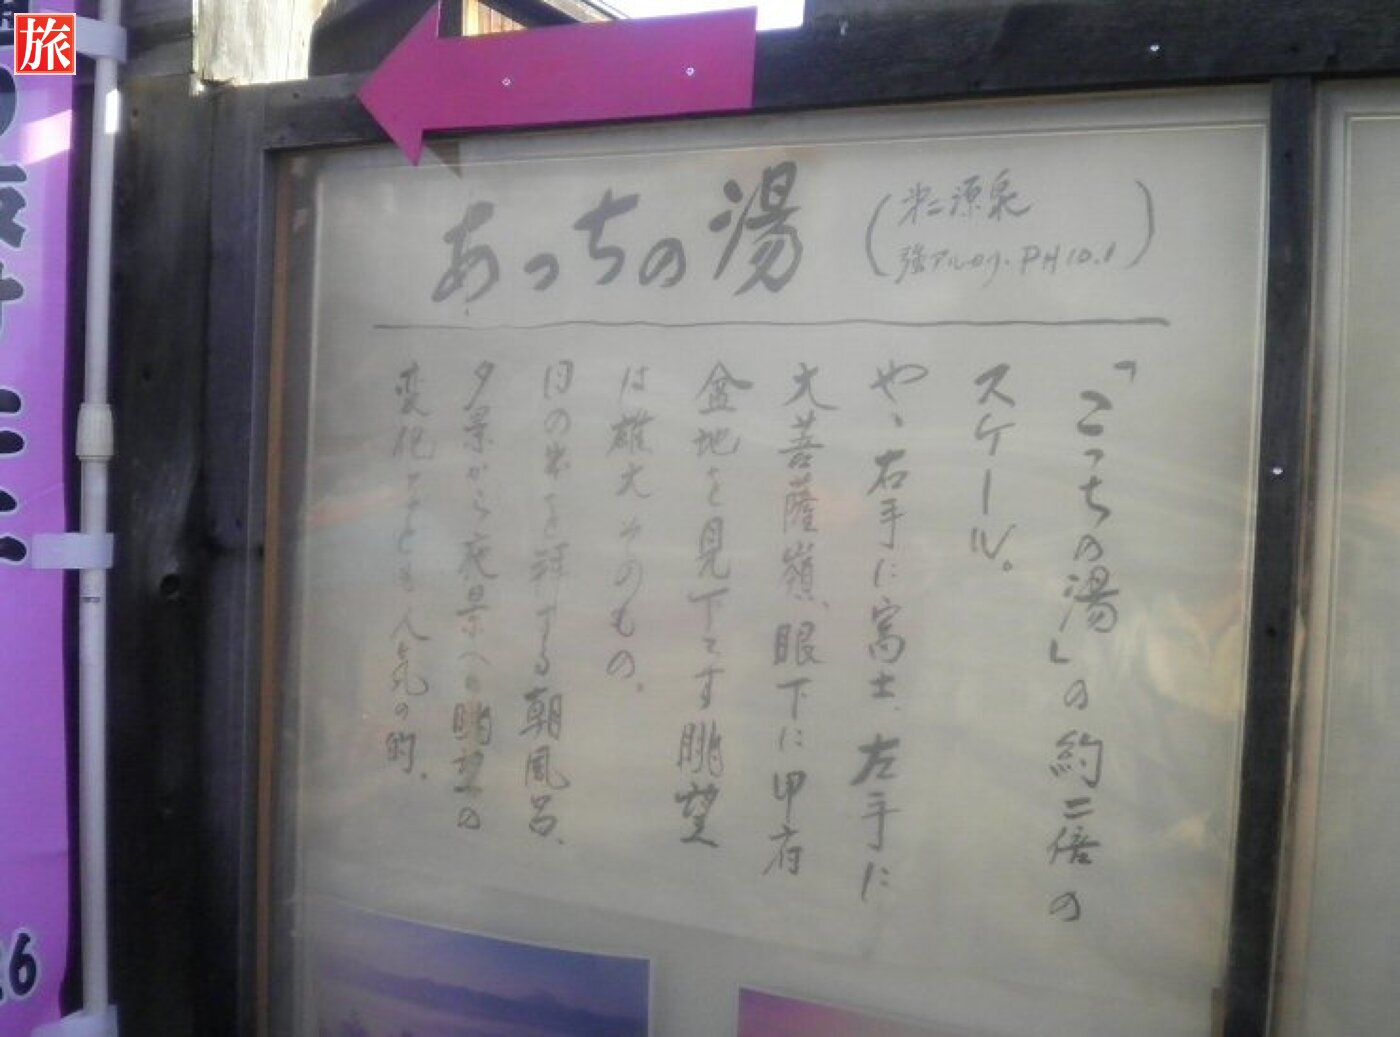 旅
あっちの湯
(第二源泉
強アルカリ・PH10.1)
「こっちの湯」の約二倍の
スケール。
やゝ右手に富士、左手に
大菩薩嶺、眼下に甲府
盆地を見下ろす眺望
は雄大そのもの。
日の出を拝する朝風呂、
夕景から夜景への眺望の
変化なども人気の的。
26